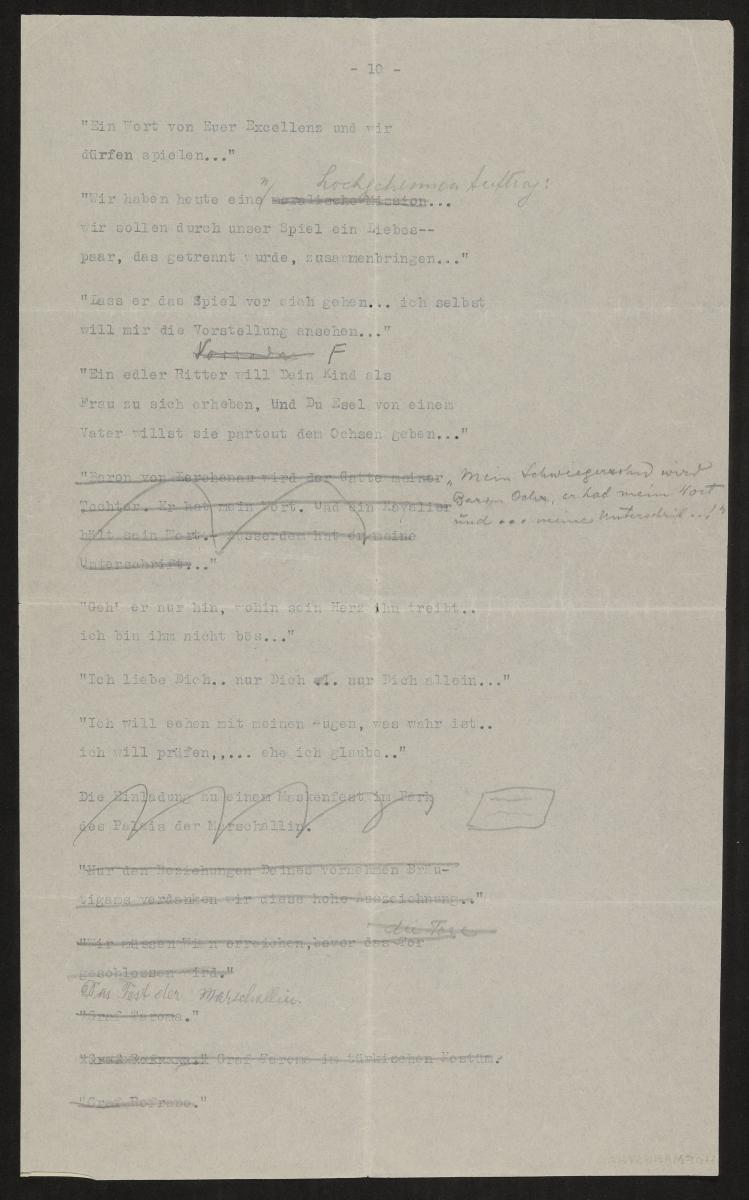 - 10 -
"Ein Wort von Euer Excellenz und wir
dürfen spielen..."
n hochgeheimen Auftrag!
"Wir haben heute eine moralische Mission...
wir sollen durch unser Spiel ein Liebes--
paar, das getrennt wurde, zusammenbringen..."
"Lass er das Spiel vor sich gehen... ich selbst
will mir die Vorstellung ansehen..."
F
"Ein edler Ritter will Dein Kind als
Frau zu sich erheben, Und Du Esel von einem
Vater willst sie partout dem Ochsen geben..."
"Baron von Lerchenau wird der Gatte meiner
Tochter. Er hat mein Wort. Und ein Kavalier
hält sein Wort.- Ausserdem hat er meine
Unterschrift..."
"Mein Schwiegersohn wird
Baron Ochs, er had mein Wort
und ... meine Unterschrift..!"
"Geh' er nur hin, wohin sein Herz ihn treibt..
ich bin ihm nicht bös..."
"Ich liebe Dich.. nur Dich .. nur Dich allein..."
"Ich will sehen mit meinen Augen, was wahr ist..
ich will prüfen,,... ehe ich glaube.."
Die Einladung zu einem Maskenfest im Park
des Palais der Marschallin.
"Nur den Beziehungen Deines vornehmen Bräu-
tigams verdanken wir diese hohe Auszeichnung.."
die Tore
"Wir müssen Wien erreichen, bevor das Tor
geschlossen wird."
Das Fest der Marschallin.
"Graf Parome."
Graf Parome im türkischen Kostüm.
"Graf Rofrano."